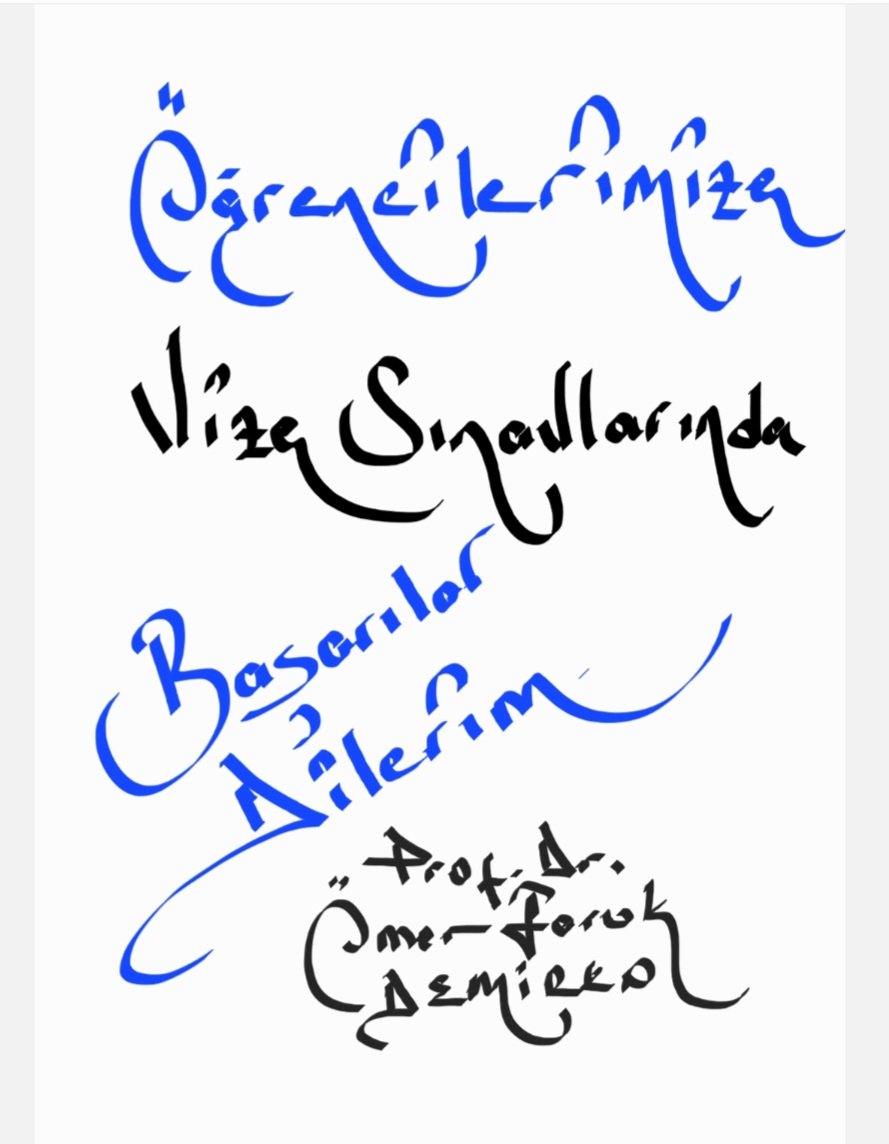 Öğrencilerimize
Vize Sınavlarında
Başarılar
Dilerim
Prof. Dr.
Ömer Faruk